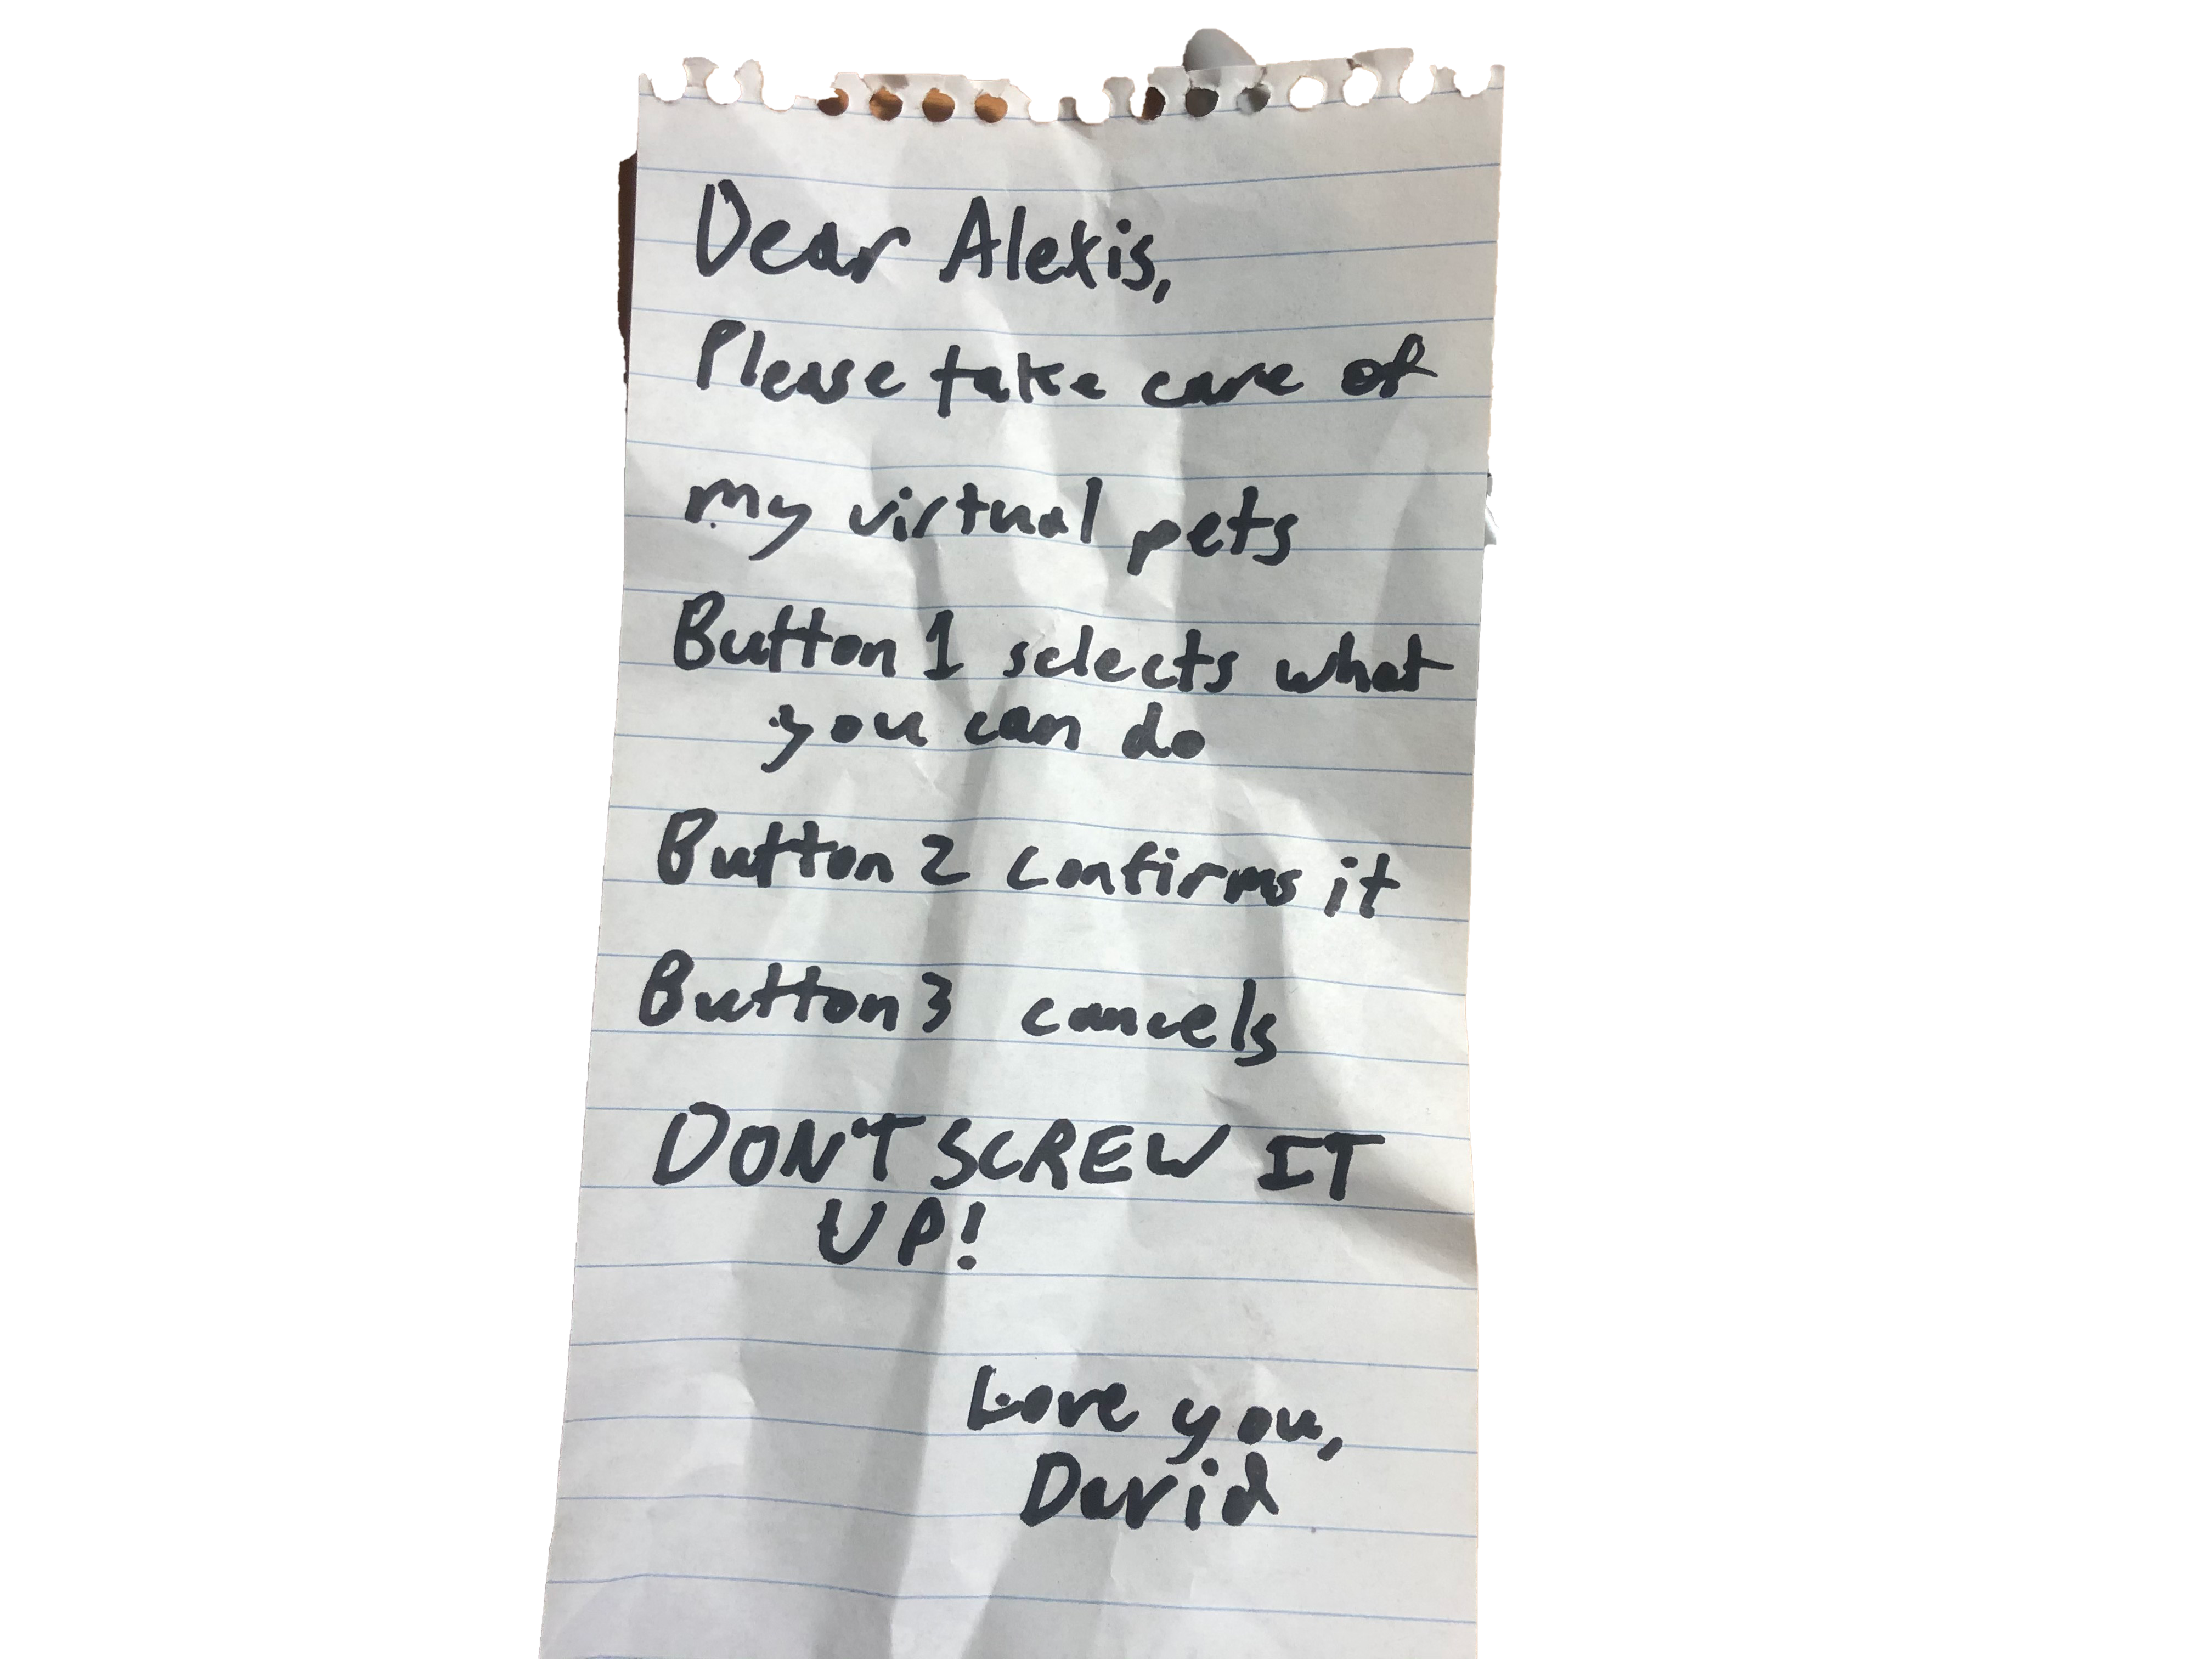 Dear Alexis,
Please take care of
my virtual pets
Button 1 selects what
you can do
Button 2 confirms it
Button 3 cancels
DON'T SCREW IT
UP!
Love you,
David